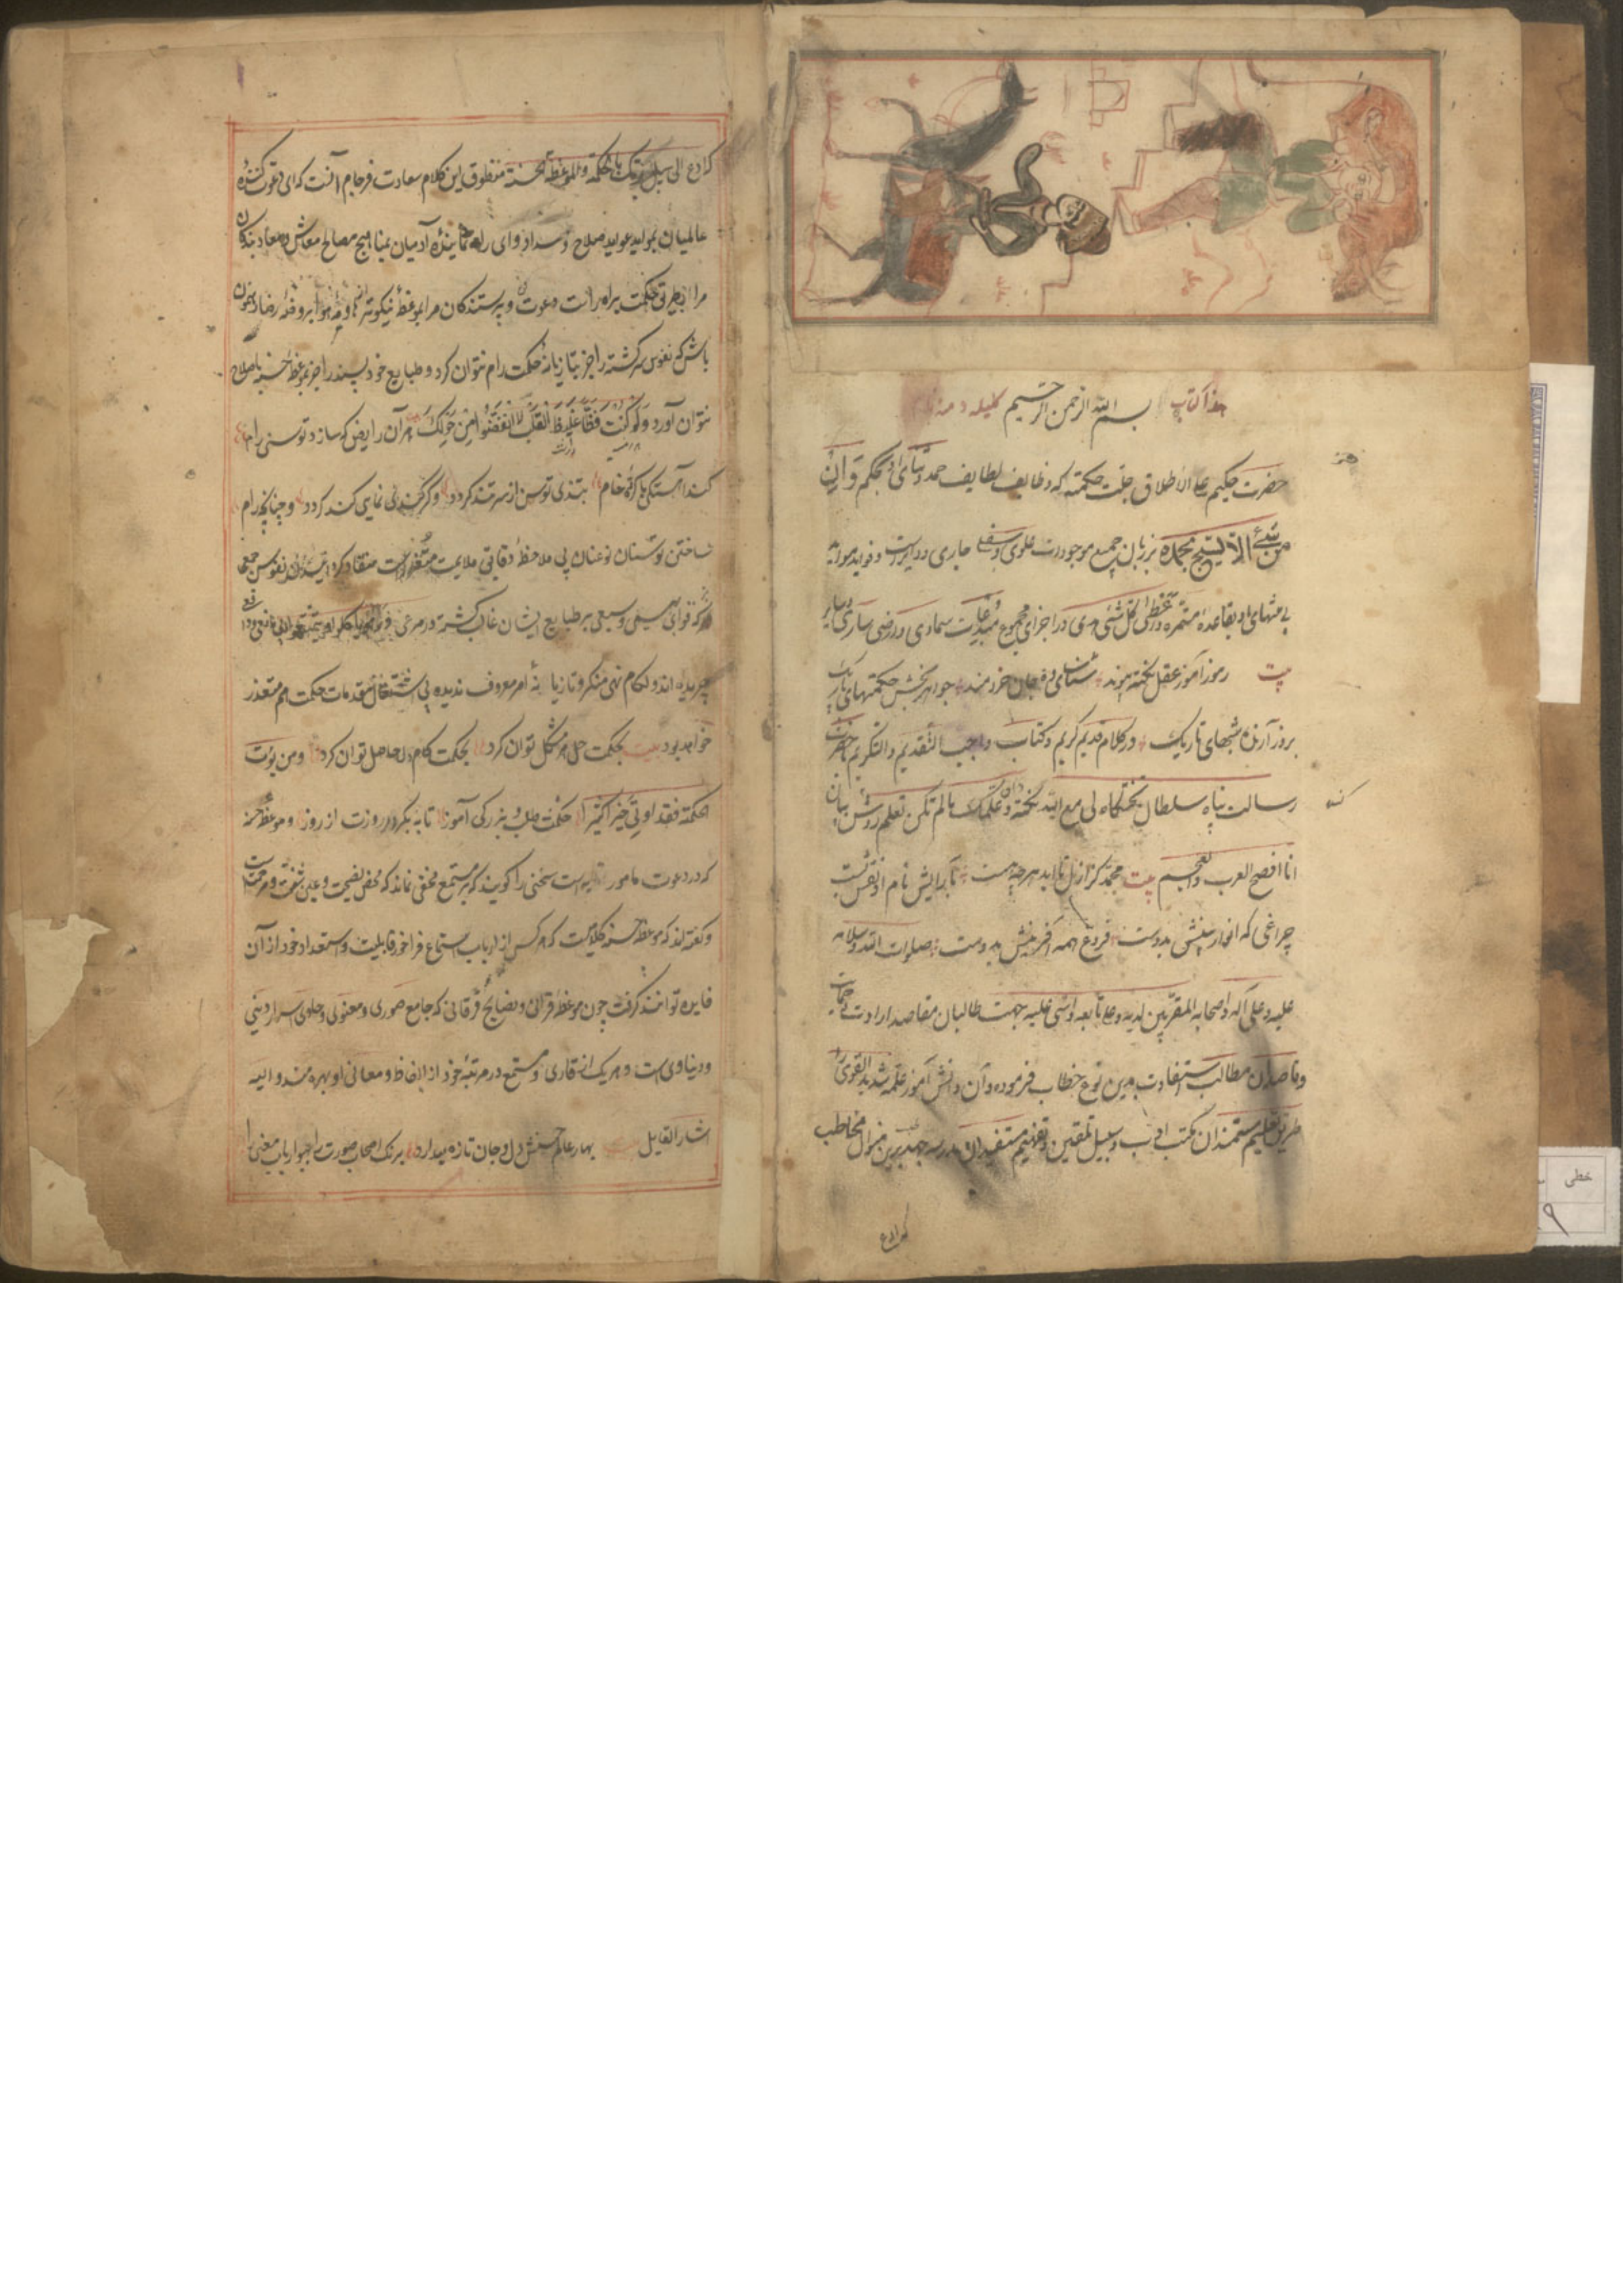 هذا کتاب بسم الله الرحمن الرحیم کلیله و دمنه
حضرت حکیم علی الاطلاق جلت حکمته که وظایف لطایف حمد و ثنای او بحکم وان
من شئ الا یسبح بحمده بر زبان جمیع موجودات علوی و سفلی جاری و دایرست و فواید مواید
بی منتهای او بقاعده مستمره اعطی کل شئ در اجزای مجموع مبدعات سماوی و ارضی ساری و سایر
بیت رموز آموز عقل نکته پیوند شناسای ده جان خردمند جواهر بخش حکمتهای باریک
بروز آرنده شبهای تاریک و در کلام قدیم کریم و کتاب واجب التقدیم والتکریم حضرت
رسالت پناه سلطان تختگاه لی مع الله نکته دان و علمک مالم تکن تعلم روشن بیان
انا افصح العرب والعجم بیت محمد کز ازل تا ابد هر چه هست بآرایش نام او نقش بست
چراغی که انوار بینش بدوست فروغ همه آفرینش بدوست صلوات الله و سلامه
علیه و علی آله و اصحابه المقربین لدیه و علی تابعه و اثنی علیه جهت طالبان مقاصد ارادت
وقاصدان مطالب استفادت بدین نوع خطاب فرموده و آن دانش آموز علمه شدید القوی را
طریق تعلیم مستمندان مکتب ادب و سبیل تلقین و تفهیم مستفیدان مدرسه برین منوال مخاطب
که ادع
که ادع الی سبیل ربک بالحکمة والموعظة الحسنة منطوق این کلام سعادت فرجام آنست که ای دعوت کننده
عالمیان بموایدعواید صلاح و سداد و ای راه نماینده آدمیان بمناهج مصالح معاش و معاد بندگان
مرا بطریق حکمت براه راست دعوت کن و پرستندگان مرا بموعظه نیکوتر از هوا بروضه رضا رهنمون
باش که نفوس سرکشته را جز بتازیانه حکمت رام نتوان کرد و طبایع خود پسند را جز بموعظه حسنه باصلاح
نتوان آورد ولو کنت فظا غلیظ القلب لا انفضوا من حولک هر آن رایض که سازد توسنی رام
کند آهستگی با کره خام بتندی توسن از سر تند کردد وگر کندی نمایی کند کردد و چنانچه رام
ساختن توسنان نوعنان بی ملاحظه دقایق ملایمت متعذرست منقاد کردانیدن نفوس جمعی
که قوای بهیمی و سبعی بر طبایع ایشان غالب کشته در مرعی
چریده اند و لکام نهی منکر و تازیانه امر معروف ندیده بی اشتغال بمقدمات حکمت هم متعذر
خواهد بود بیت بحکمت حل هر مشکل توان کرد بحکمت کام دل حاصل توان کرد و من یوت
الحکمة فقد اوتی خیرا کثیرا حکمت طلب و بزرکی آموز تا به نکرد روزت از روز و موعظه حسنه
که در دعوت مامور به است سخنی را گویند که بر مستمع مخفی نماند که محض نصیحت و عین شفقت و مرحمتست
و کفته اند که موعظه حسنه کلامیست که هر کس از ارباب استماع فراخور قابلیت و استعداد خود از آن
فایده توانند کرفت چون موعظه قران و نصایح فرقانی که جامع صوری و معنوی و حاوی اسرار دینی
و دنیاوی است و هر یک از قاری و مستمع در مرتبه خود از الفاظ و معانی او بهره مندند و الیه
اشار القایل بیت بهار عالم حسنش دل و جان تازه میدارد برنک اصحاب صورت را ببو ارباب معنی را
خطی
۹